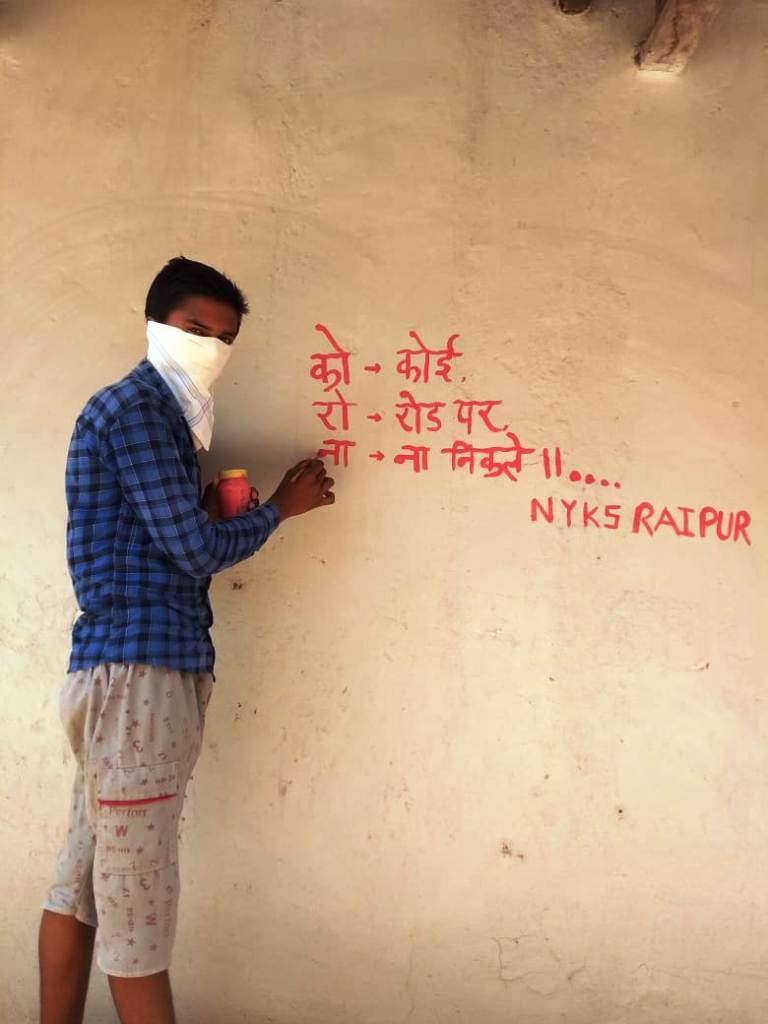 को → कोई,
रो → रोड पर,
ना → ना निकले ॥....
NYKS RAIPUR
Perfors
W
W